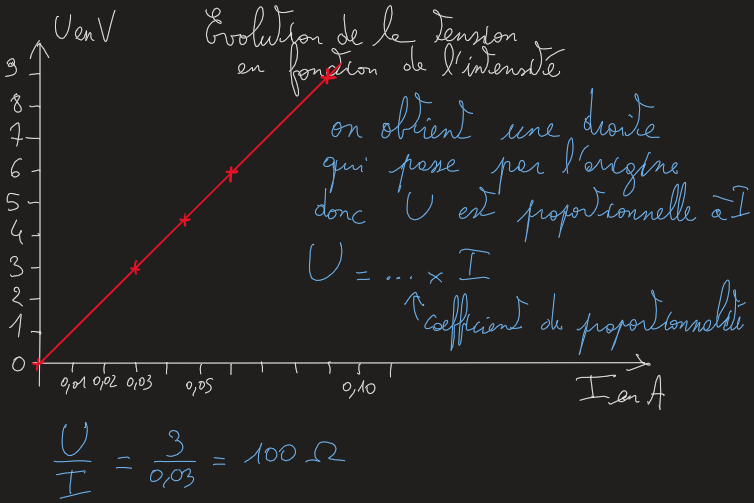 U en V
Evolution de la tension
en fonction de l'intensité
9
8
7
6
5
4
3
2
1
0
0,01 0,02 0,03 0,05 0,10
I en A
on obtient une droite
qui passe par l'origine
donc U est proportionnelle à I
U = ... × I
↑ coefficient de proportionnalité
U/I = 3/0,03 = 100 Ω